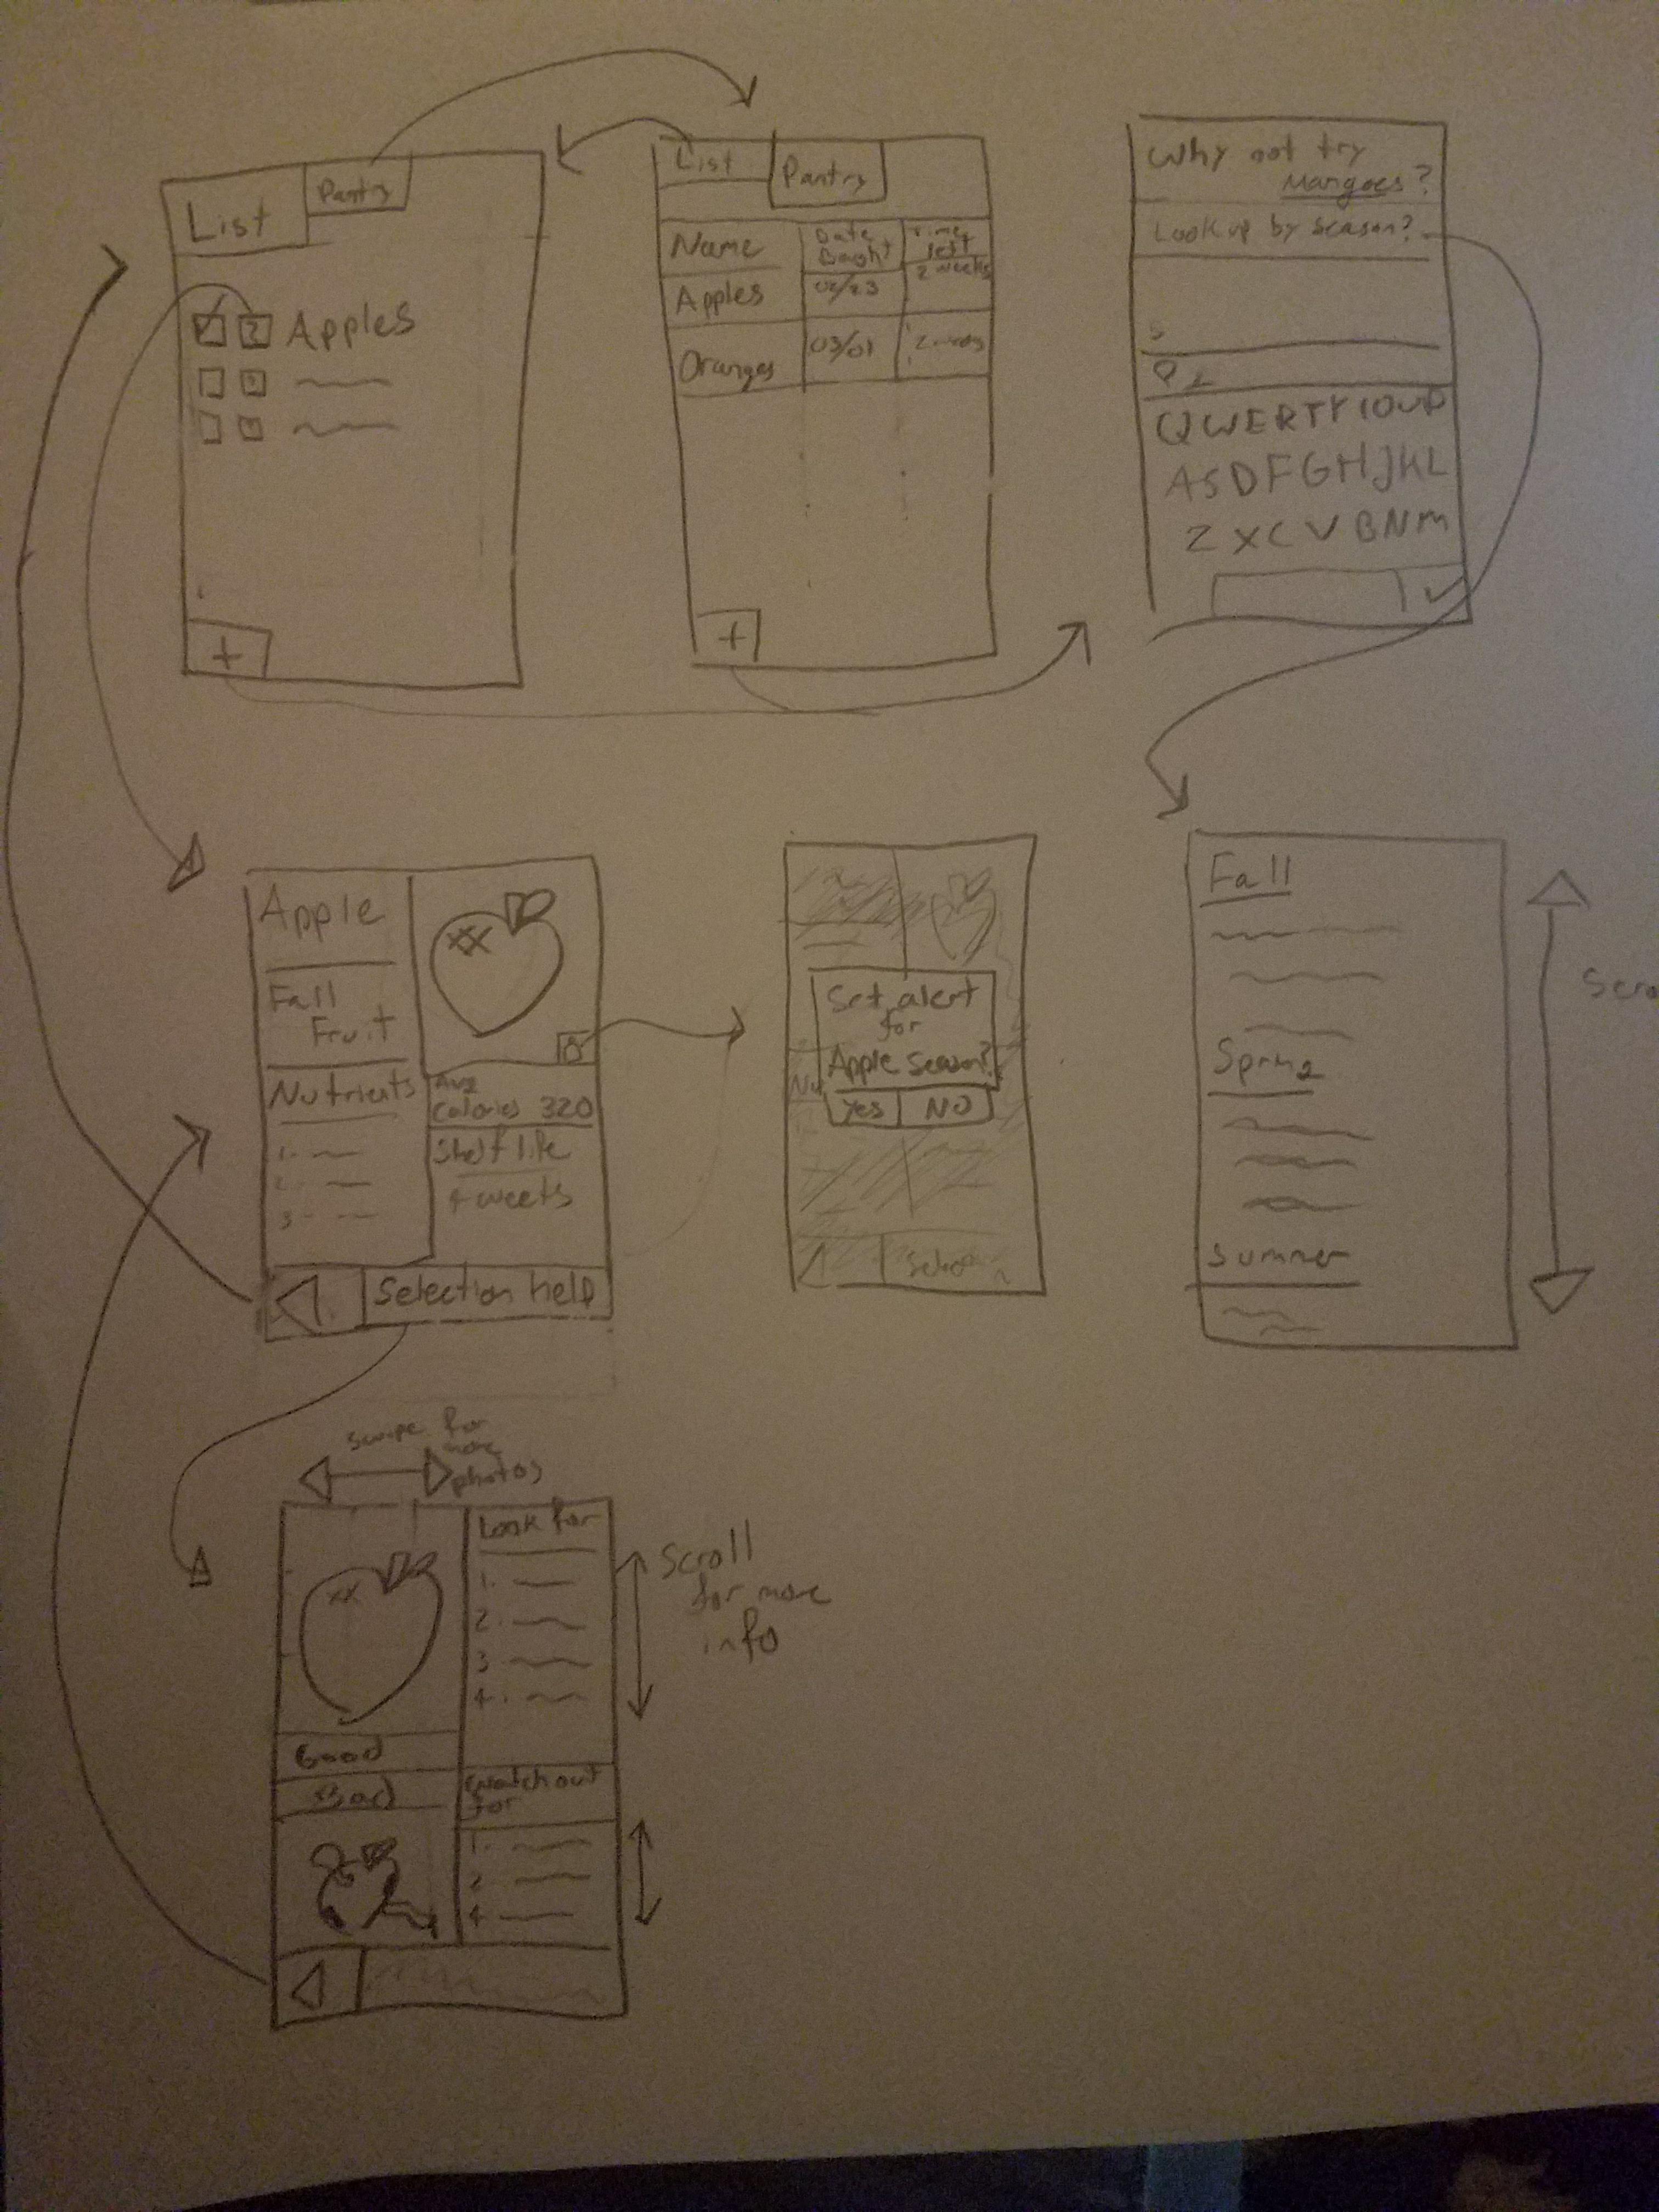 List
Pantry
Apples
+
List
Pantry
Name
Date
Bought
Time
left
Apples
02/23
2 weeks
Oranges
03/01
+
Why not try
Mangoes?
Look up by season?
QWERTYIOUP
ASDFGHJKL
ZXCVBNM
Apple
Fall
Fruit
Nutrients
1.
2.
3.
Avg
Calories 320
Shelf life
4 weeks
Selection help
Set alert
for
Apple Season?
Yes
NO
Nu
Selec
Fall
Spring
Summer
Scro
Swipe for
more
photos
Look for
1.
2.
3.
4.
Good
Bad
Watch out
for
1.
2
4
Scroll
for more
info